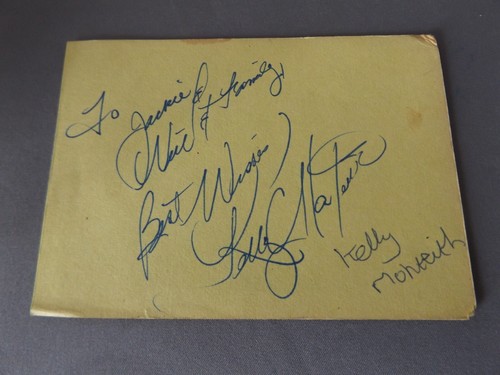 To Jackie &
Neil & Family,
Best Wishes
Kelly Monteith
Kelly
Monteith